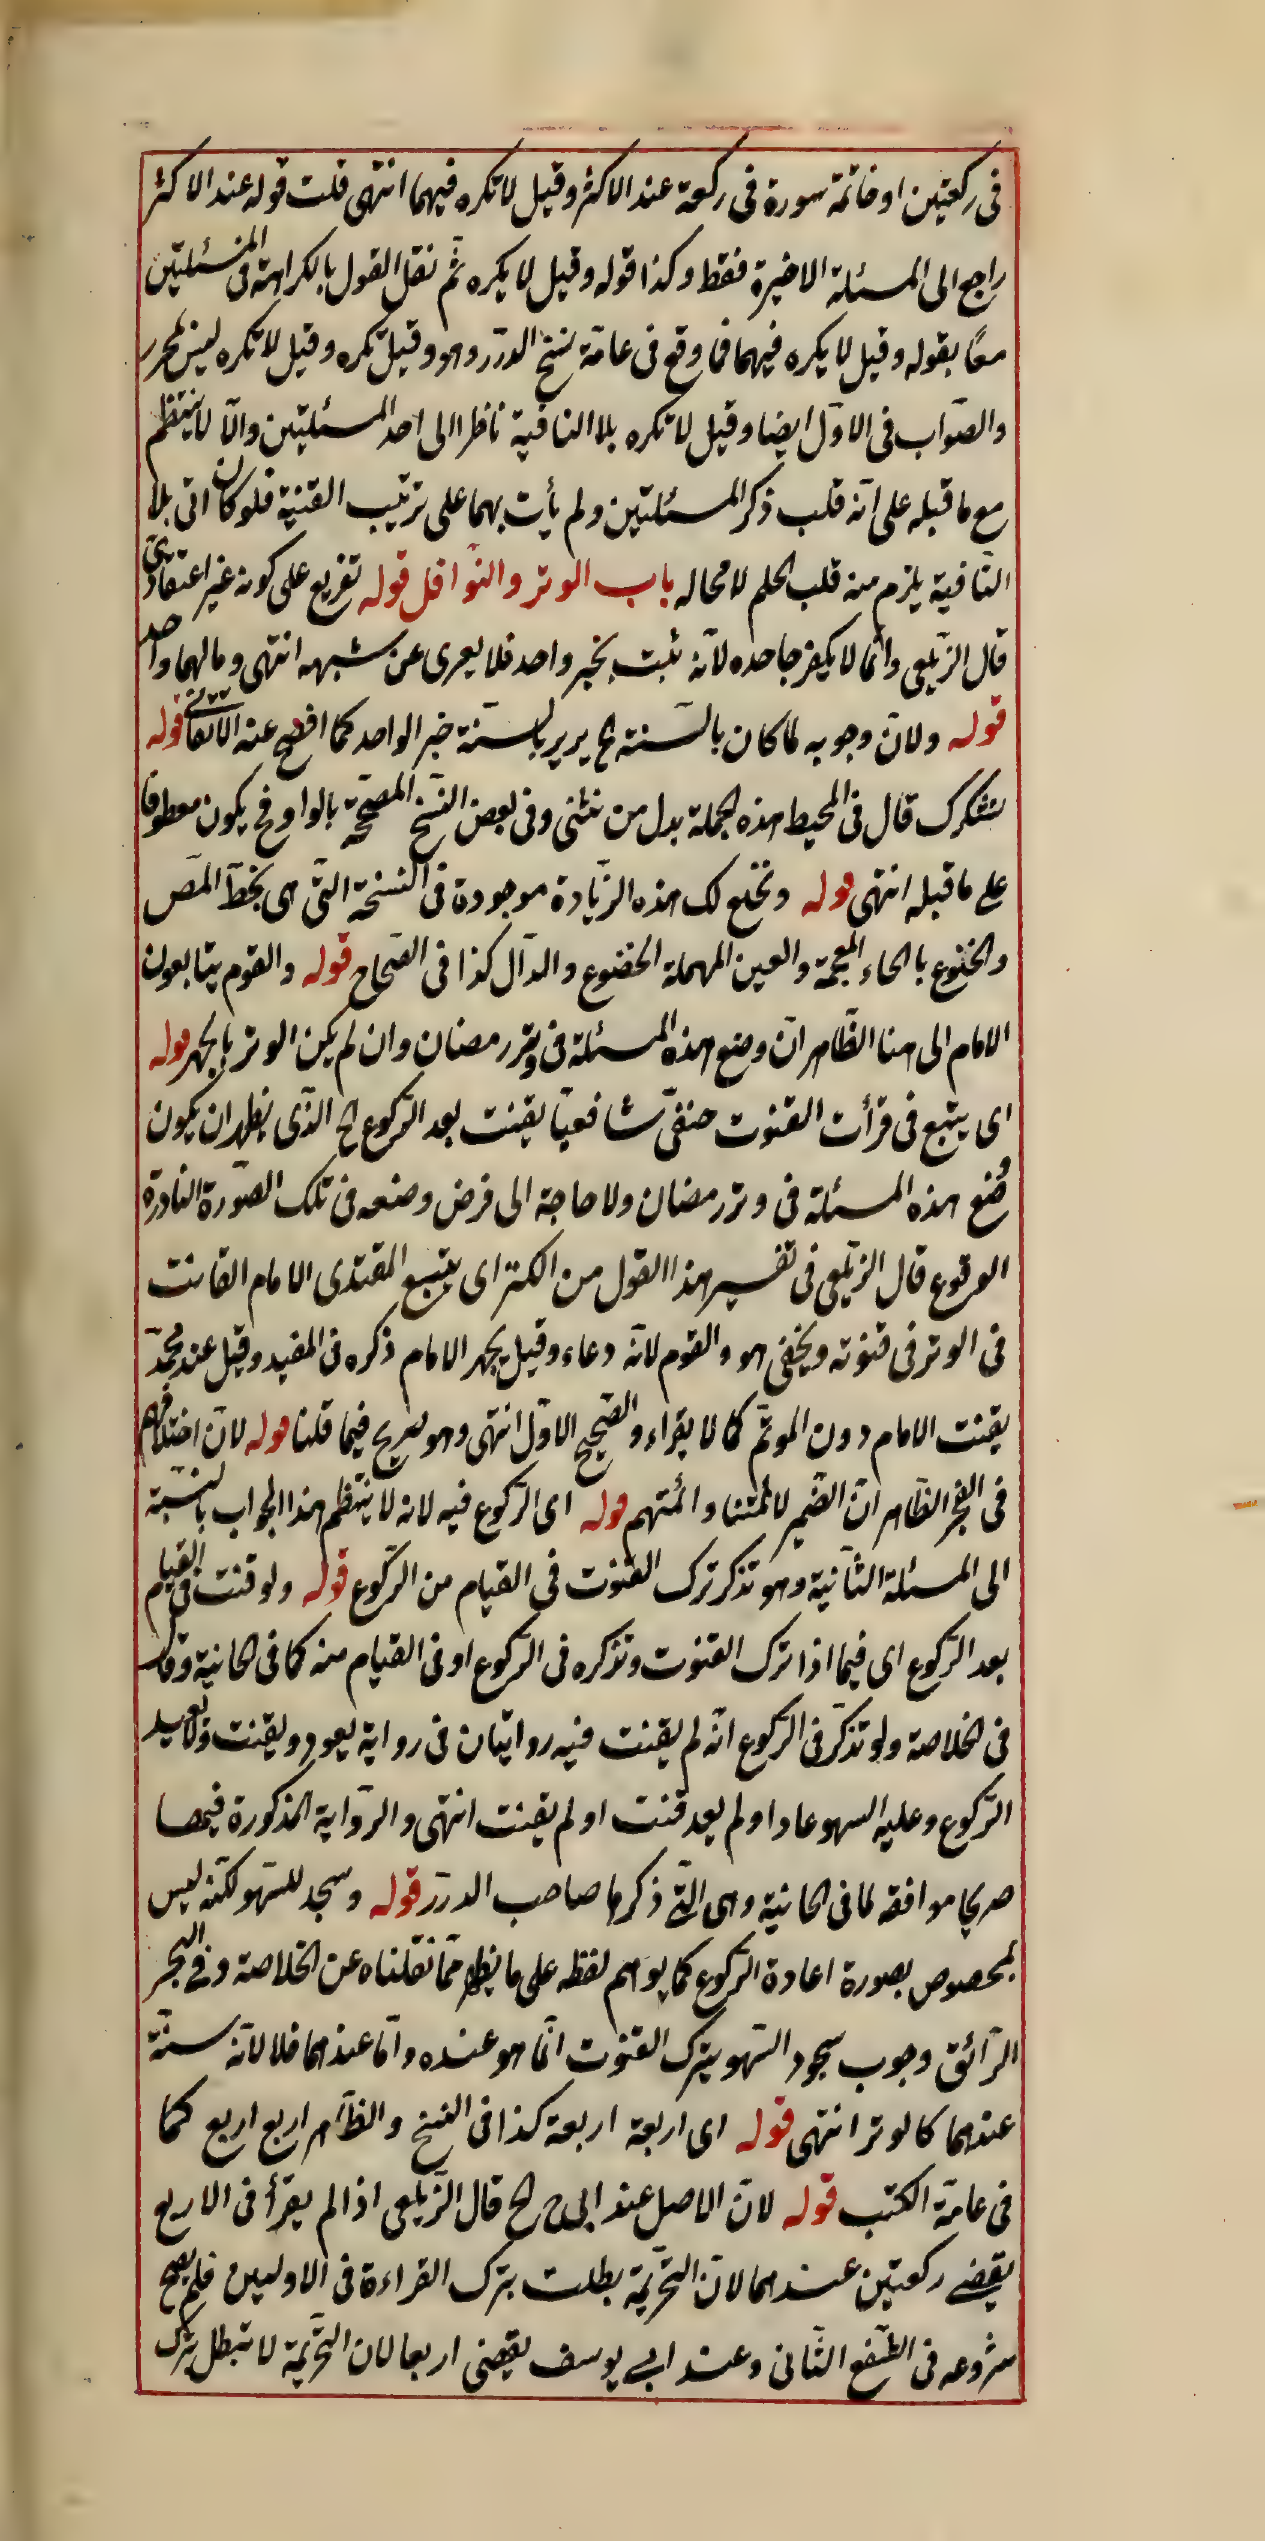 فى ركعتين او خاتمة سورة فى ركعة عند الاكثر وقيل لا تكره فيهما انتهى قلت قوله عند الاكثر
راجع الى المسئلة الاخيرة فقط وكذا قوله وقيل لا يكره ثم نقل القول بالكراهة فى المسئلتين
معًا بقوله وقيل لا يكره فيهما فما وقع فى عامّة نسخ الدرر وهو وقيل تكره وقيل لا تكره ليس بمحرر
والصّواب فى الاوّل ايضا وقيل لا تكره بلا النافية ناظرا الى احد المسئلتين والّا لا ينتظم
مع ما قبله على انّه قلب ذكر المسئلتين ولم يأت بهما على ترتيب القنية فلو كان اتى بلا
النّافية يلزم منه قلب الحكم لا محاله باب الوتر والنّوافل قوله تفريع على كونه غير اعتقادى
قال الزّيلعى وانّما لا يكفر جاحده لانّه ثبت بخبر واحد فلا يعرى عن شبهه انتهى ومالهما واحد
قوله ولانّ وجوبه لما كان بالسّنته الخ يريد بالسّنة خبر الواحد كما افصح عنه الاتقانى قوله
نشكرك قال فى المحيط هذه الجملة بدل من نثنى وفى بعض النّسخ المصحّحة بالواو فح يكون معطوفا
على ما قبله انتهى قوله ونخنع لك هذه الزّيادة موجودة فى النسخة التّى هى بخطّ المصّ
والخنوع بالخاء المعجمة والعين المهملة الخضوع والذّل كذا فى الصّحاح قوله والقوم يتابعون
الامام الى هنا الظّاهر انّ وضع هذه المسئلة فى وتر رمضان وان لم يكن الوتر بالجهر قوله
اى يتبع فى قرأت القنوت حنفىّ شافعيّا يقنت بعد الرّكوع الخ الذّى يظهر ان يكون
وضع هذه المسئلة فى وتر رمضان ولا حاجة الى فرض وضعه فى تلك الصّورة النادرة
الوقوع قال الزّيلعى فى تفسير هذا القول من الكنز اى يتبع المقتدى الامام القانت
فى الوتر فى قنوته ويخفى هو والقوم لانّه دعاء وقيل يجهر الامام ذكره فى المفيد وقيل عند محمّد
يقنت الامام دون الموتمّ كما لا يقراء والصّحيح الاوّل انتهى وهو صريح فيما قلنا قوله لانّ اختلافهم
فى الفجر الظّاهر انّ الضّمير لائمّتنا وائمّتهم قوله اى الرّكوع فيه لانه لا ينتظم هذا الجواب بالنسبة
الى المسئلة الثّانية وهو تذكر ترك القنوت فى القيام من الرّكوع قوله ولو قنت فى القيام
بعد الرّكوع اى فيما اذا ترك القنوت وتذكره فى الرّكوع او فى القيام منه كما فى الخانية وقال
فى الخلاصة ولو تذكّر فى الرّكوع انّه لم يقنت فيه روايتان فى رواية يعود ويقنت ولا يعيد
الرّكوع وعليه السهو عاد او لم يعد قنت او لم يقنت انتهى والرّواية المذكورة فيهما
صريحا موافقه لما فى الخانية وهى التّى ذكرها صاحب الدرر قوله وسجد للسّهو لكنّه ليس
بمخصوص بصورة اعادة الرّكوع كما يوهم لفظه على ما يظهر ممّا نقلناه عن الخلاصة وفى البحر
الرّائق وجوب سجود السّهو بترك القنوت انّما هو عنده وامّا عندهما فلا لانّه سنّة
عندهما كالوتر انتهى قوله اى اربعة اربعة كذا فى النسخ والظّاهر اربع اربع كما
فى عامّة الكتب قوله لانّ الاصل عند ابى ح الخ قال الزّيلعى اذا لم يقرأ فى الاربع
يقضى ركعتين عندهما لانّ التّحريمة بطلت بترك القراءة فى الاوليين فلم يصح
شروعه فى الشّفع الثّانى وعند ابى يوسف يقضى اربعا لان التّحريمة لا تبطل بترك